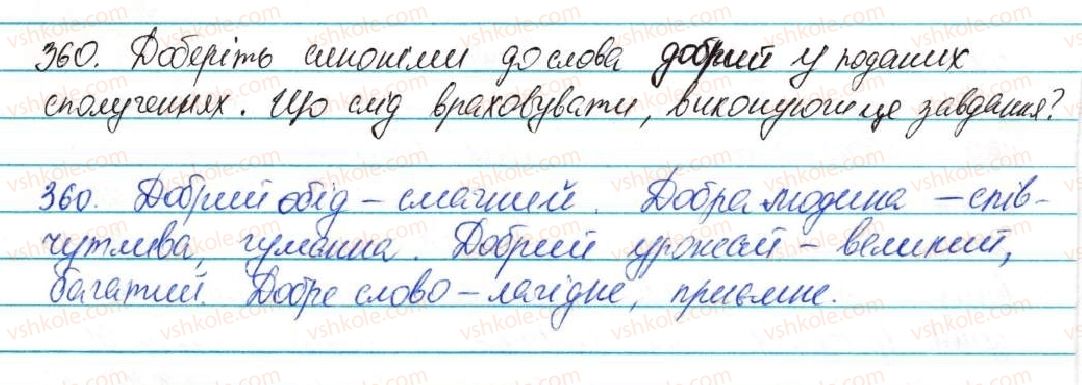 360. Доберіть синоніми до слова добрий у поданих
сполученнях. Що слід враховувати, виконуючи це завдання?
360. Добрий обід – смачний. Добра людина – спів-
чутлива, гуманна. Добрий урожай – великий,
багатий. Добре слово – лагідне, приємне.